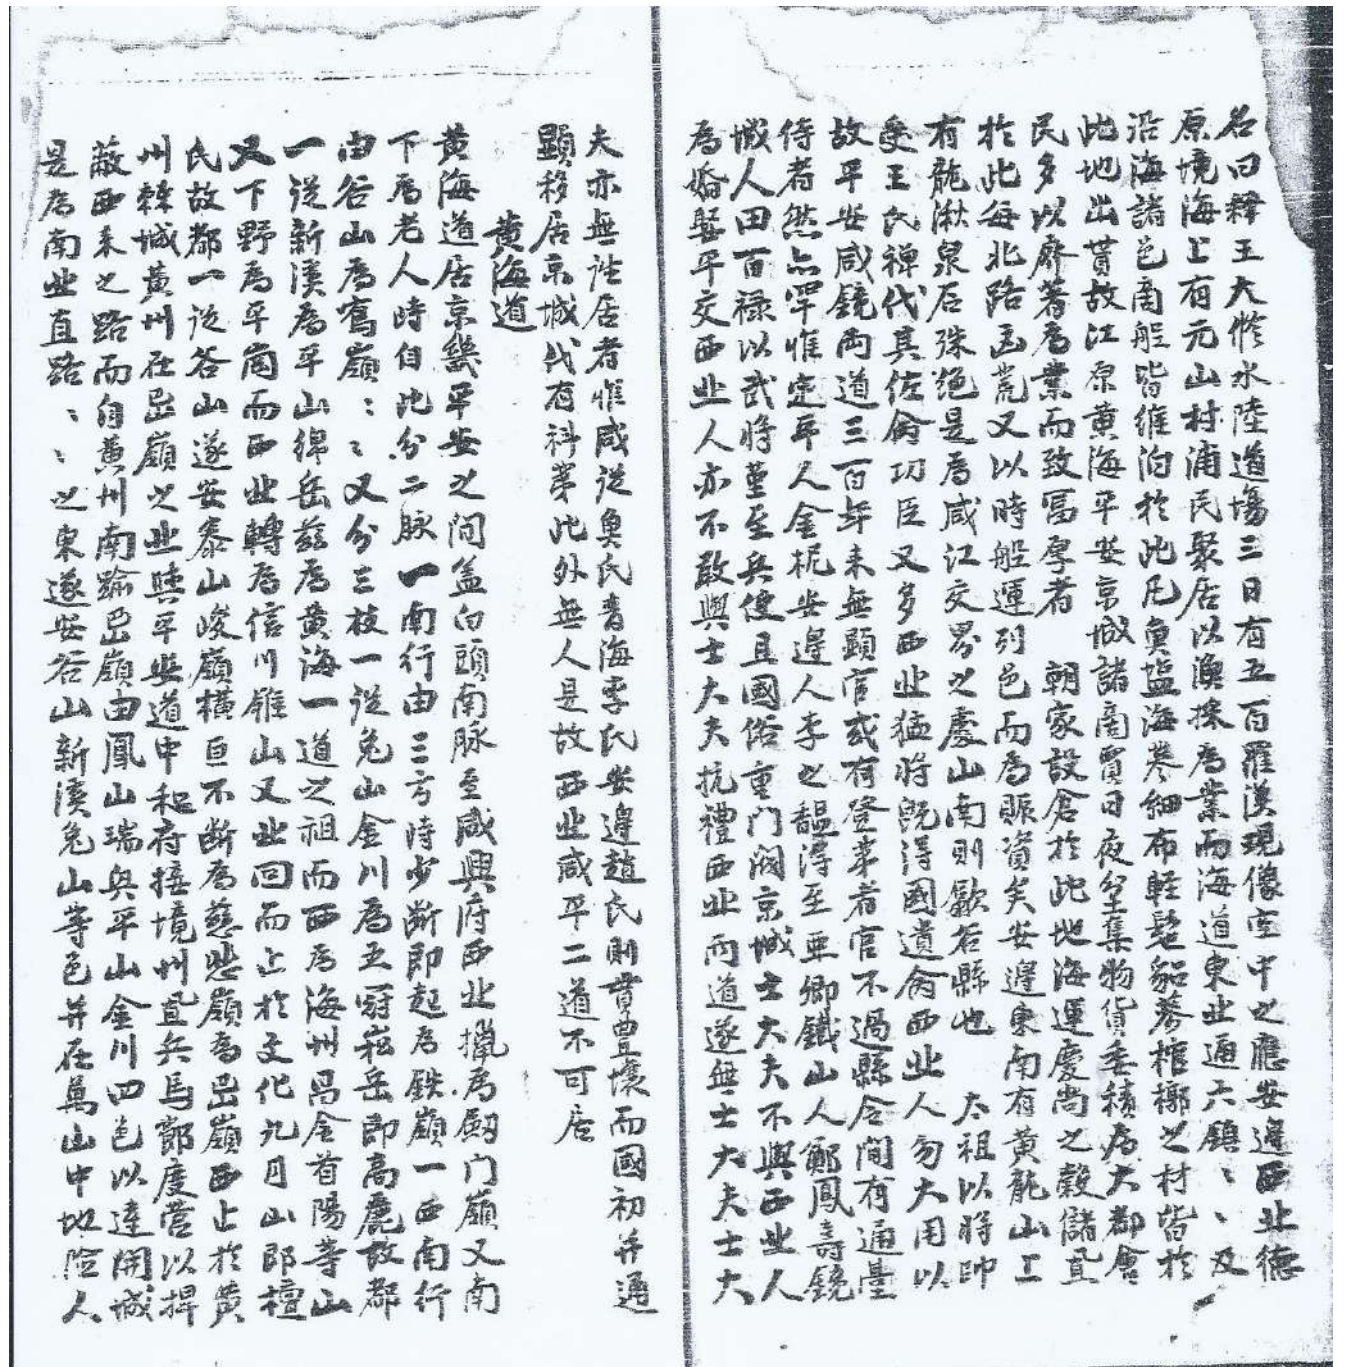 名曰釋王大修水陸道場三日有五百羅漢現像空中之應安邊西北德
原境海上有元山村浦民聚居以漁採為業而海道東北通六鎮〻〻及
沿海諸邑商船皆維泊於此凡魚塩海菜細布輕髢貂蔘棺槨之材皆於
此地出貰故江原黄海平安京城諸商賈日夜坌集物貨委積為大都會
民多以廢著為業而致富厚者 朝家設倉於此地海運慶尚之穀儲置
於此每北路凶荒又以時船運列邑而為賑資矣安邊東南有黄龍山上
有龍湫泉石殊絕是為咸江交界之處山南則歙谷縣也 太祖以將帥
受王氏禪代其佐命功臣又多西北猛將既得國遺命西北人勿大用以
故平安咸鏡兩道三百年来無顯官或有登第者官不過縣令間有通臺
侍者然亦罕惟定平人金柅安邊人李之馧得至亞卿鐵山人鄭鳳壽鏡
城人田百禄以武將堇至兵使且國俗重门閥京城士大夫不與西北人
為婚娶平交西北人亦不敢與士大夫抗禮西北兩道遂無士大夫士大
夫亦無往居者惟咸從魚氏青海李氏安邊趙氏則貫豊壤而國初并通
顯移居京城代有科第此外無人是故西北咸平二道不可居
黄海道
黄海道居京畿平安之間盖白頭南脉至咸興府西北擸為劔门嶺又南
下為老人時自此分二脉一南行由三方時少断即起為鉄嶺一西南行
由谷山為寫嶺〻〻又分三枝一從兔山金川為五冠崧岳即高麗故都
一從新溪為平山綿岳兹為黄海一道之祖而西為海州昌金首陽等山
又下野為平崗而西北轉為信川雉山又北回而止於文化九月山即檀
氏故都一從谷山遂安泰山峻嶺橫亘不断為慈悲嶺為岊嶺西止於黄
州棘城黄州在岊嶺之北與平安道中和府接境州置兵馬節度營以捍
蔽西来之路而自黄州南踰岊嶺由鳳山瑞興平山金川四邑以達開城
是為南北直路〻〻之東遂安谷山新溪兔山等邑并在萬山中地險人